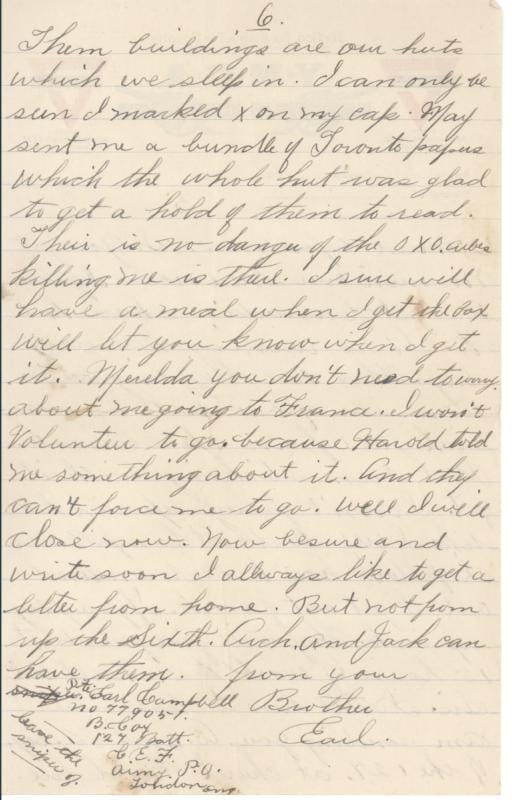 6.
Them buildings are our huts
which we sleep in. I can only be
seen I marked x on my cap. May
sent me a bundle of Toronto papers
which the whole hut was glad
to get a hold of them to read.
Their is no danger of the OXO. cubes
killing me is there. I sure will
have a meal when I get the box
will let you know when I get
it. you don't need to worry.
about me going to France. I won't
Volunteer to go. because Harold told
me something about it. And they
can't force me to go. Well I will
close now. Now besure and
write soon I allways like to get a
letter from home. But not from
up the Sixth. Arch. and Jack can
have them. from your
Pte. Earl Campbell Brother
no 779051. Earl.
B. Coy
127 Batt.
C. E. F.
Army P.O.
London Eng
leave the
sniper of